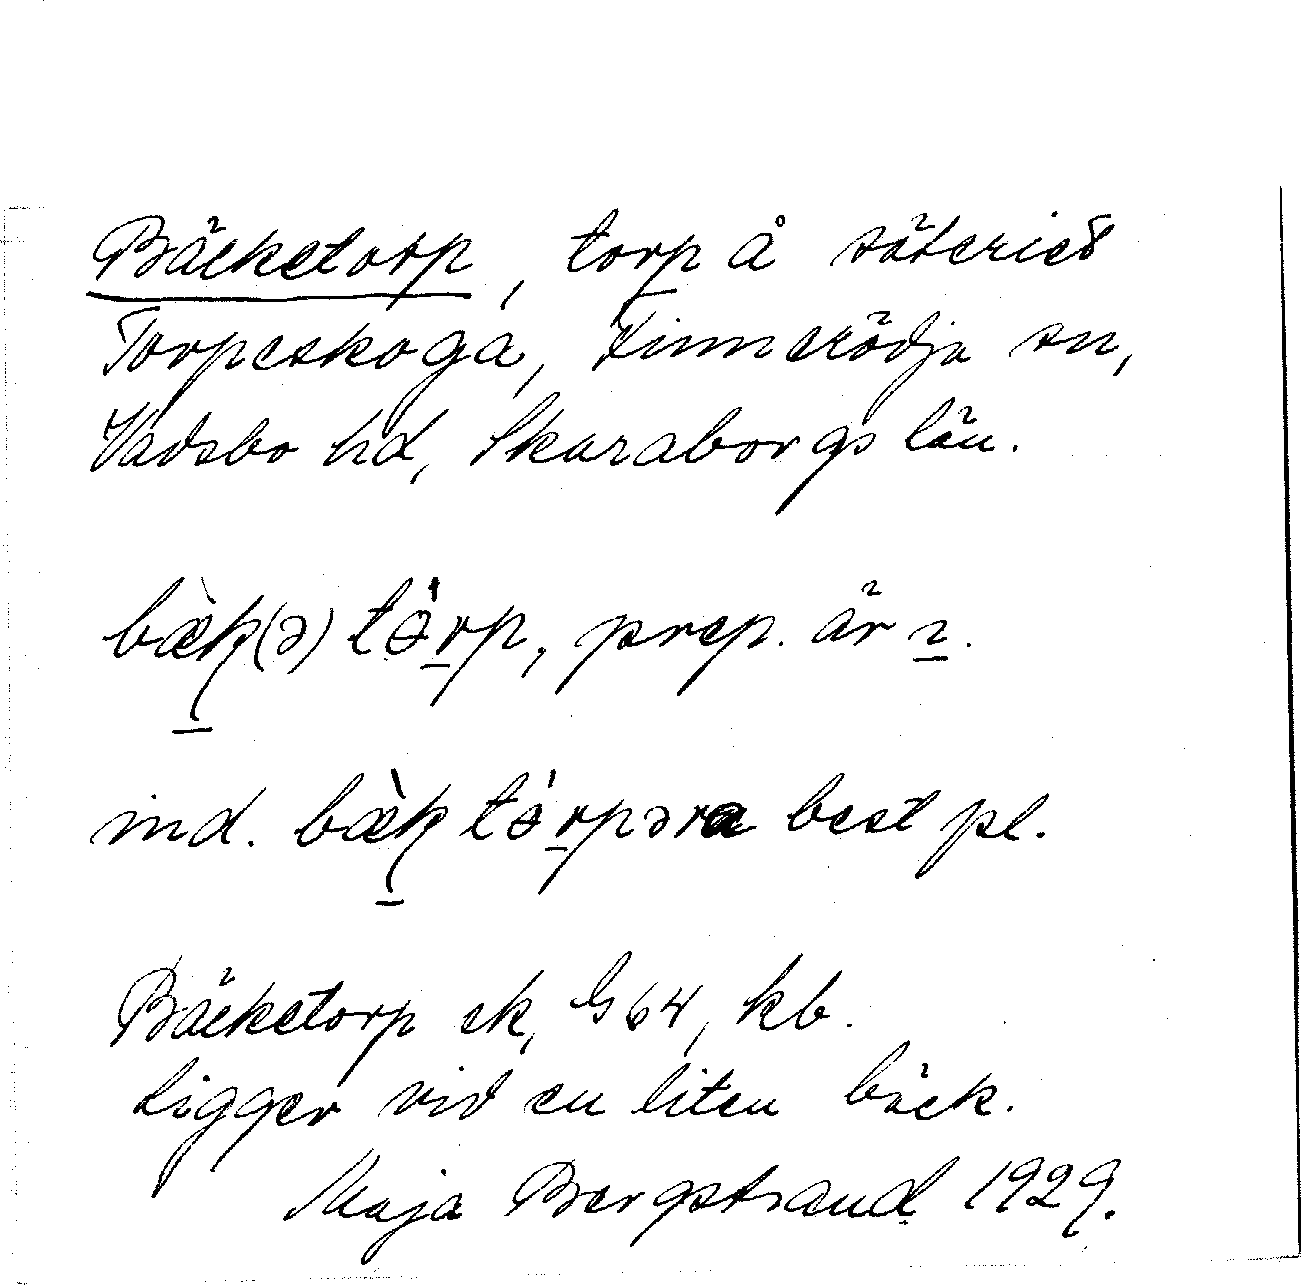 Bäcketorp, torp å säteriet
Torpeskoga, Finnerödja sn,
Vadsbo hd, Skaraborgs län.
bæ̀k(ə) tɵ́rp, prep. är ɪ.
ind. bæ̀k tɵ́rpəra best pl.
Bäcketorp ek, G 64, kb.
Ligger vid en liten bäck.
Maja Bergstrand 1929.